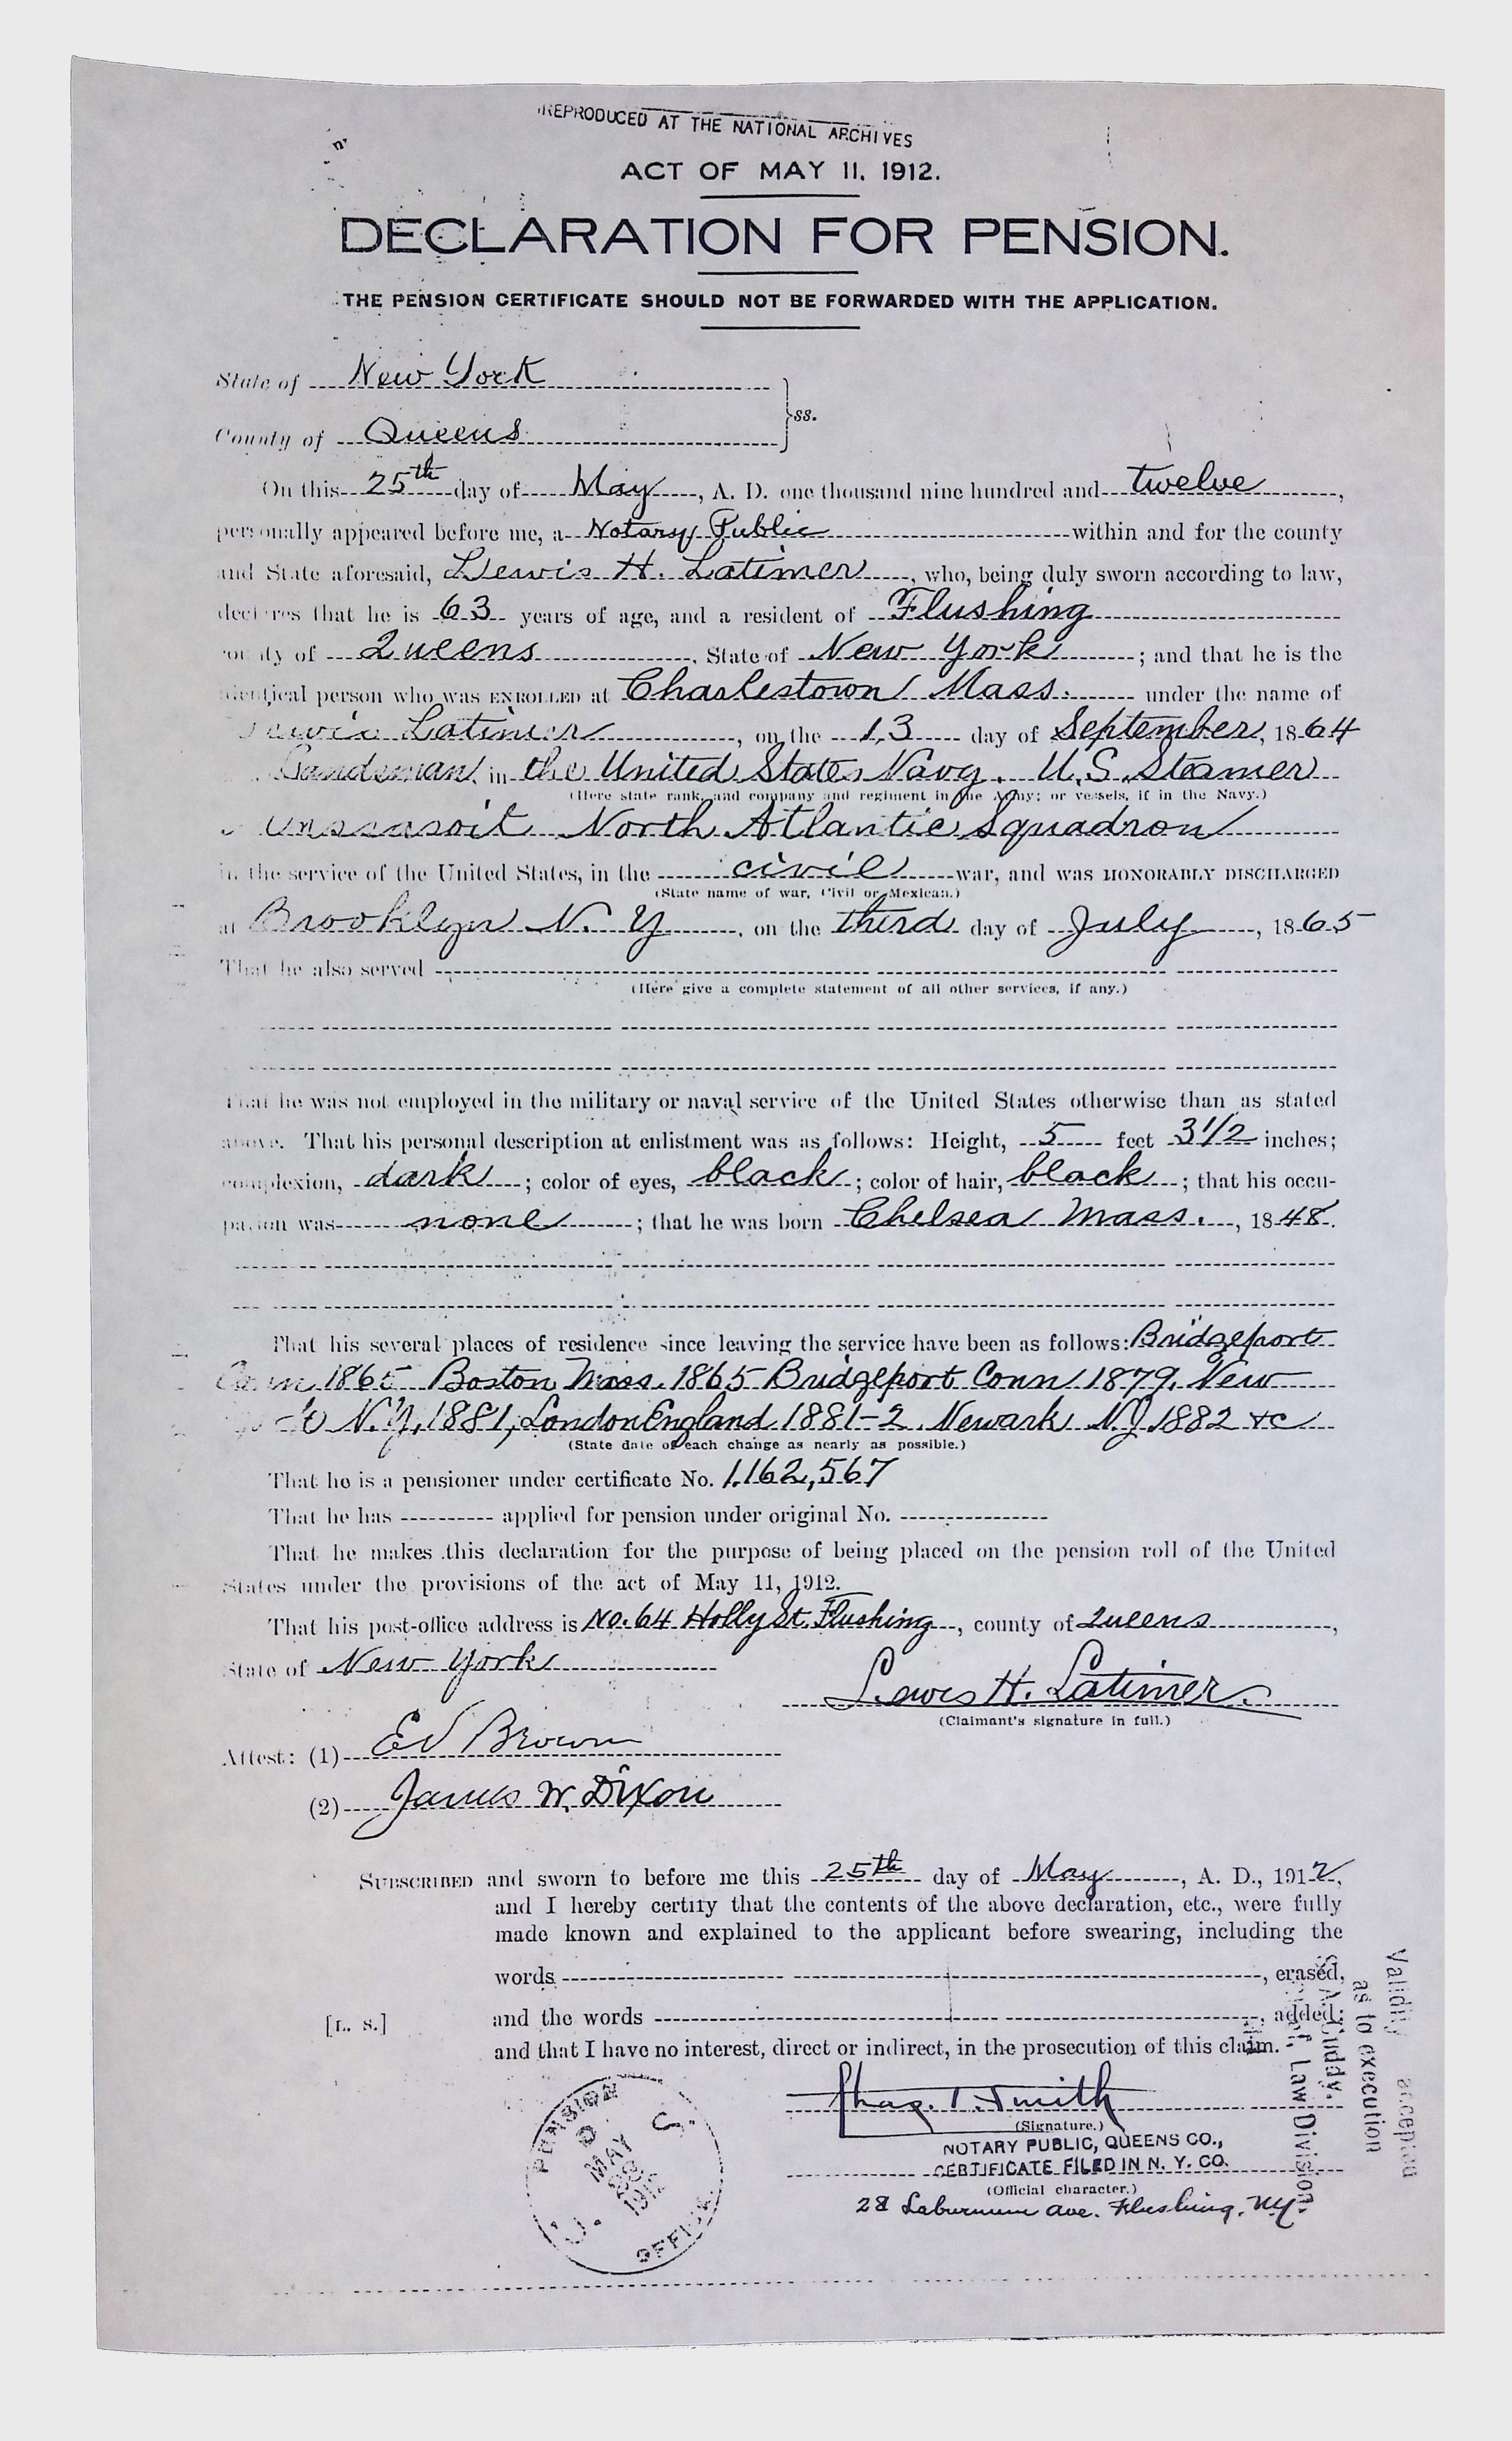 REPRODUCED AT THE NATIONAL ARCHIVES
ACT OF MAY 11, 1912.
DECLARATION FOR PENSION.
THE PENSION CERTIFICATE SHOULD NOT BE FORWARDED WITH THE APPLICATION.
State of New York
ss.
County of Queens
On this 25th day of May, A. D. one thousand nine hundred and twelve,
personally appeared before me, a Notary Public within and for the county
and State aforesaid, Lewis H. Latimer, who, being duly sworn according to law,
declares that he is 63 years of age, and a resident of Flushing
county of Queens, State of New York; and that he is the
identical person who was ENROLLED at Charlestown Mass. under the name of
Lewis Latimer, on the 13 day of September, 1864
Landsman in the United States Navy. U.S. Steamer
(Here state rank, and company and regiment in the Army; or vessels, if in the Navy.)
Massasoit North Atlantic Squadron
in the service of the United States, in the civil war, and was HONORABLY DISCHARGED
(State name of war, Civil or Mexican.)
at Brooklyn N. Y, on the third day of July, 1865
That he also served
(Here give a complete statement of all other services, if any.)
That he was not employed in the military or naval service of the United States otherwise than as stated
above. That his personal description at enlistment was as follows: Height, 5 feet 3 1/2 inches;
complexion, dark; color of eyes, black; color of hair, black; that his occu-
pation was none; that he was born Chelsea Mass., 1848.
That his several places of residence since leaving the service have been as follows: Bridgeport
Conn 1865 Boston Mass. 1865 Bridgeport Conn 1879, New
N.Y, 1881, London England 1881-2 Newark N.J. 1882 &c
(State date of each change as nearly as possible.)
That he is a pensioner under certificate No. 1,162,567
That he has applied for pension under original No.
That he makes this declaration for the purpose of being placed on the pension roll of the United
States under the provisions of the act of May 11, 1912.
That his post-office address is No. 64 Holly St. Flushing, county of Queens,
State of New York
Lewis H. Latimer
(Claimant's signature in full.)
Attest: (1) Ed Brown
(2) James W. Dixon
SUBSCRIBED and sworn to before me this 25th day of May, A. D., 1912,
and I hereby certify that the contents of the above declaration, etc., were fully
made known and explained to the applicant before swearing, including the
words, erased,
and the words, added;
[L. S.]
and that I have no interest, direct or indirect, in the prosecution of this claim.
Chas. T. Smith
(Signature.)
NOTARY PUBLIC, QUEENS CO.,
CERTIFICATE FILED IN N. Y. CO.
(Official character.)
28 Laburnum Ave. Flushing, N.Y.
U. S. PENSION OFFICE
MAY
28
1912
Validity accepted
as to execution
Cuddy,
Law Division.